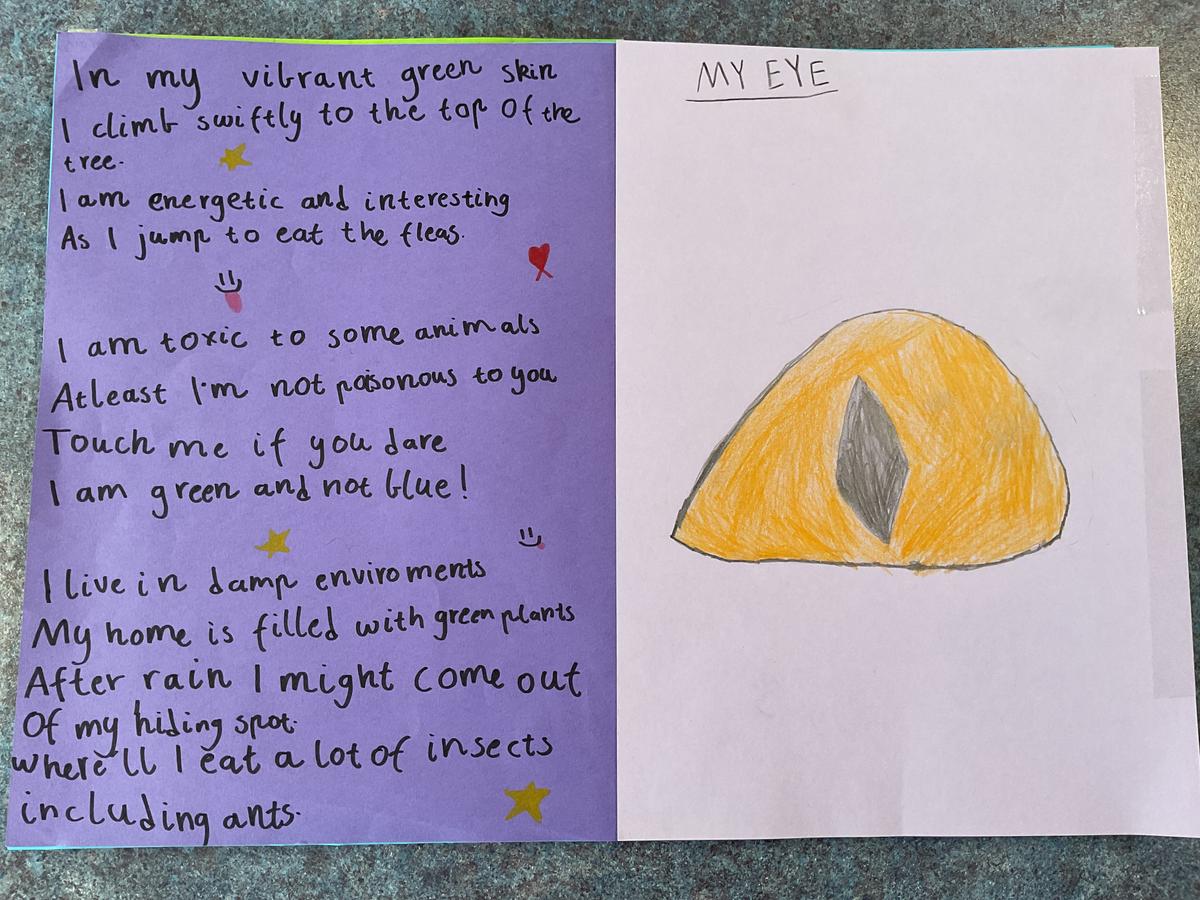 In my vibrant green skin
I climb swiftly to the top of the
tree.
I am energetic and interesting
As I jump to eat the fleas.
I am toxic to some animals
Atleast I'm not poisonous to you
Touch me if you dare
I am green and not blue!
I live in damp enviroments
My home is filled with green plants
After rain I might come out
Of my hiding spot.
where'll I eat a lot of insects
including ants.
MY EYE